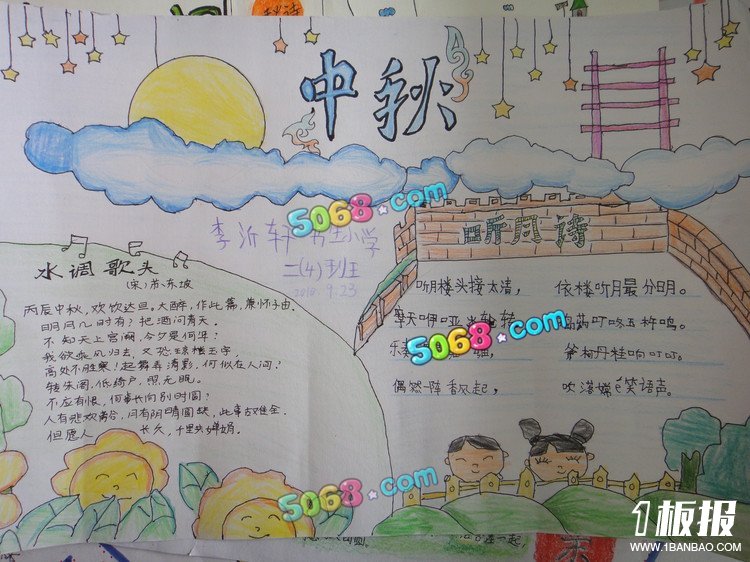 中秋
李沂轩
小学
二(4)班
2010 9.23
水调歌头
(宋)苏东坡
丙辰中秋，欢饮达旦。大醉，作此篇，兼怀子由。
明月几时有？把酒问青天。
不知天上宫阙，今夕是何年？
我欲乘风归去，又恐琼楼玉宇，
高处不胜寒！起舞弄清影，何似在人间？
转朱阁，低绮户，照无眠。
不应有恨，何事长向别时圆？
人有悲欢离合，月有阴晴圆缺，此事古难全。
但愿人 长久，千里共婵娟。
听月诗
听月楼头接太清， 依楼听月最分明。
摩天咿哑 叮咚玉杵鸣。
乐 斧柯丹桂响叮叮。
偶然一阵香风起， 吹落嫦 笑语声。
5068.com
5068.com
5068.com
5068.com
1板报
WWW.1BANBAO.COM